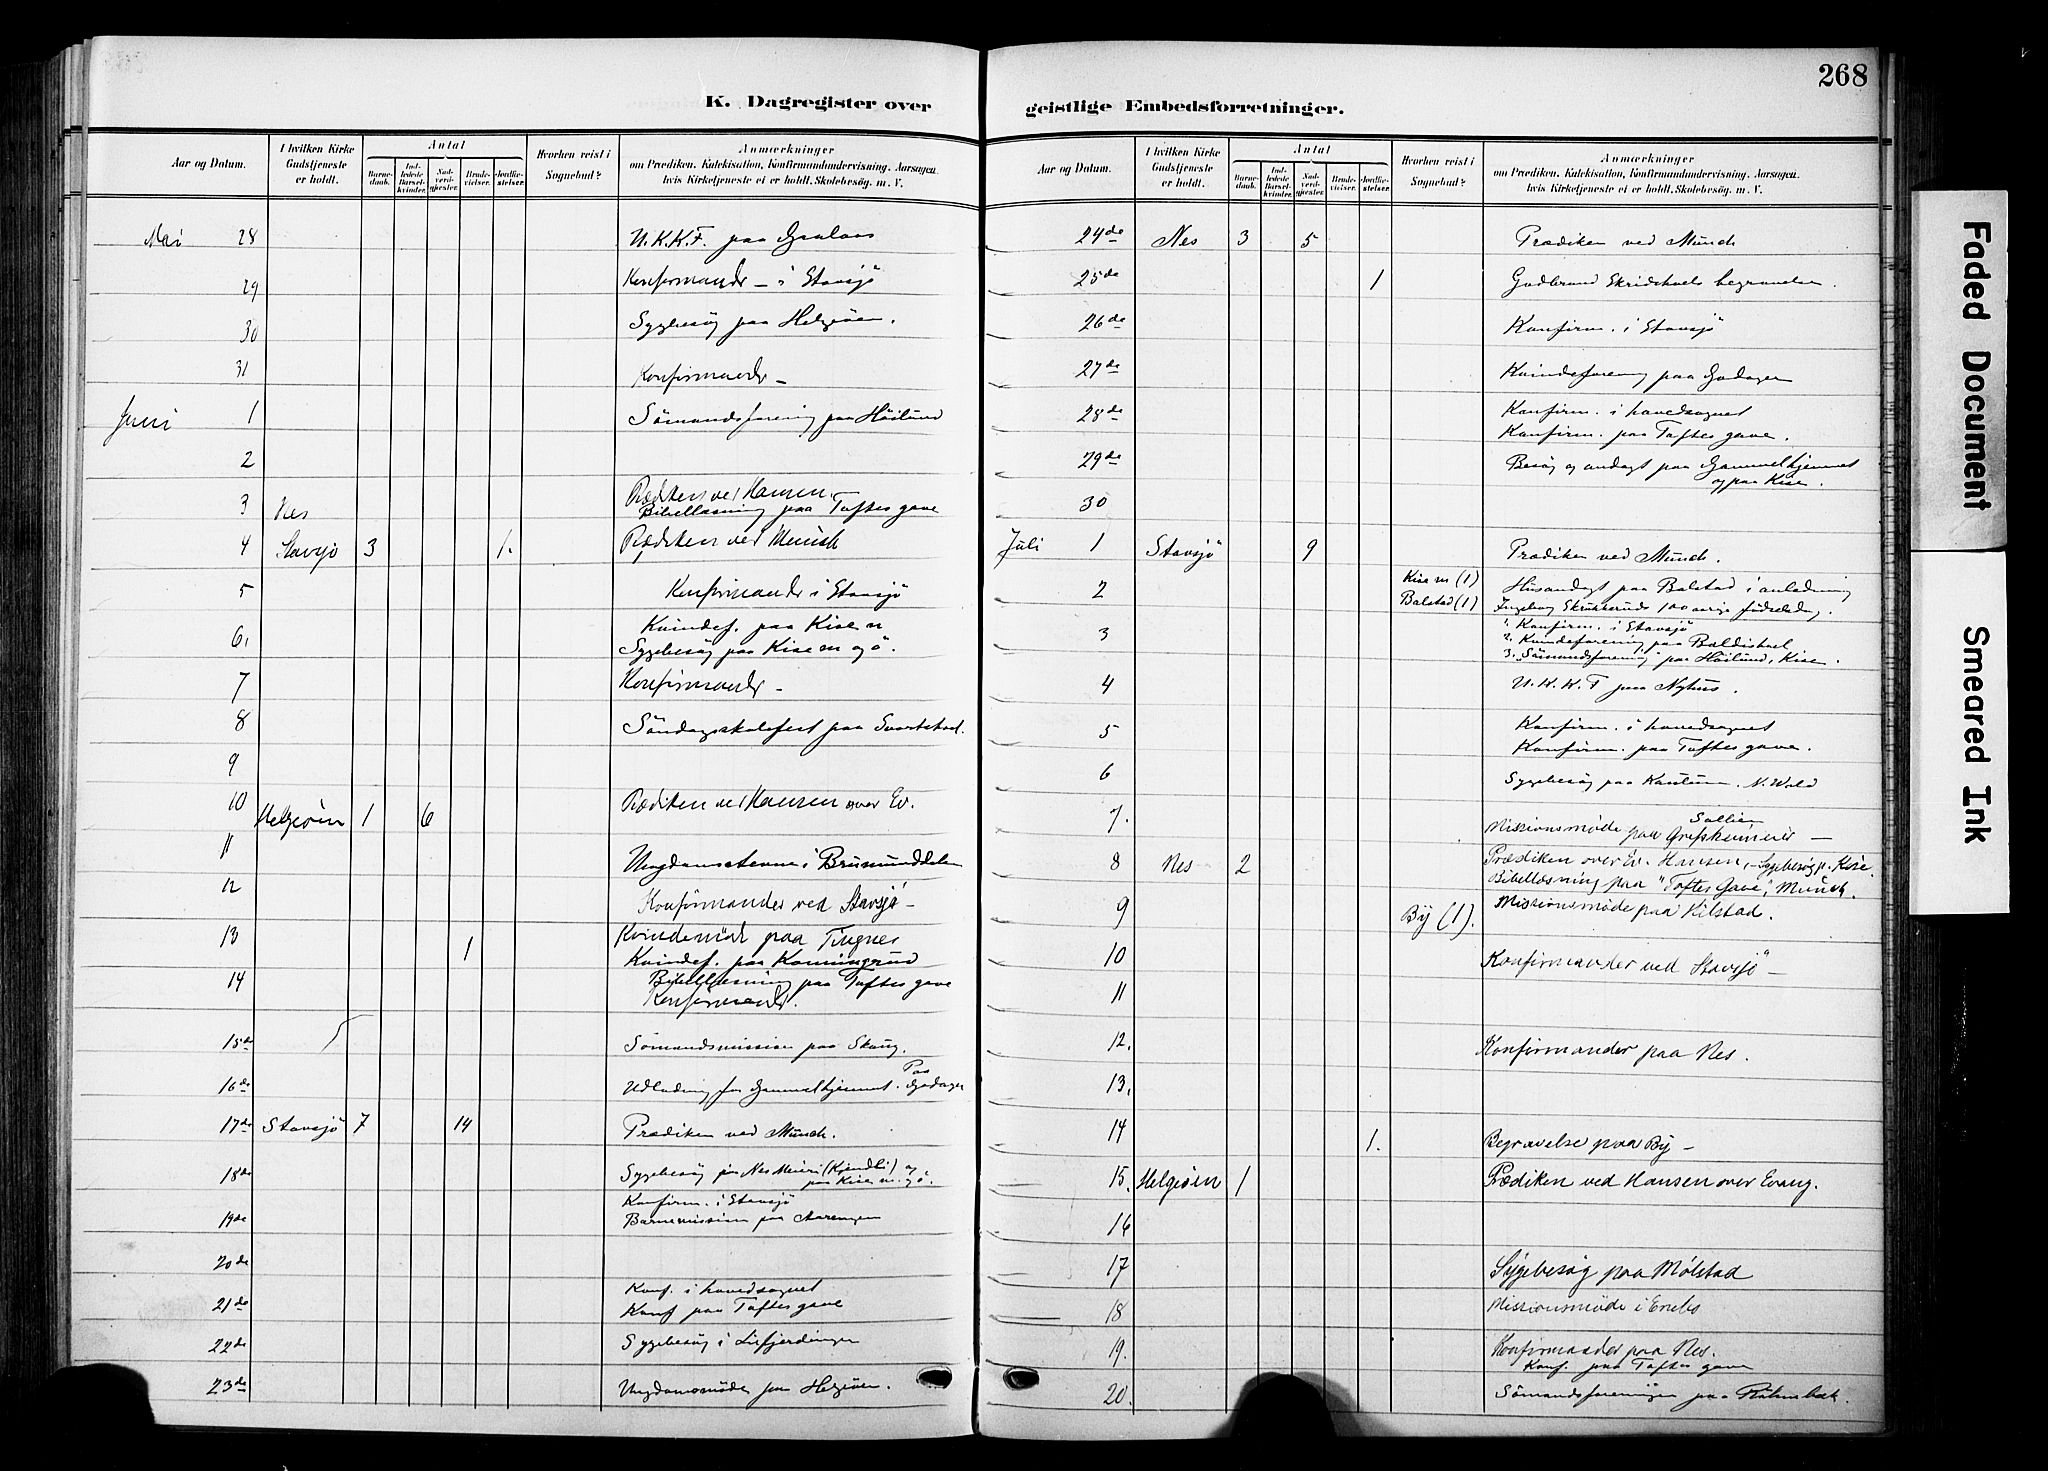 268
K. Dagregister over
geistlige Embedsforretninger.
Aar og Datum.
I hvilken Kirke Gudstjeneste er holdt.
Antal
Barnedaab.
Indledede Barselkvinder.
Nadverdgjester.
Brudevielser.
Jordfæstelser.
Hvorhen reist i Sognebud?
Anmærkninger
om Prædiken, Katekisation, Konfirmandundervisning, Aarsagen
hvis Kirketjeneste ei er holdt, Skolebesøg, m. V.
Mai 28 U.K.K.F. paa
29 Konfirmander – i Stavsjö
30 Sygebesøg paa Helgøen.
31 Konfirmander –
Juni 1 Sömandsforening paa Höilund
2
3 Nes Prædiken ved Hansen.
Bibellæsning paa Toftes gave
4 Stavsjø 3 1. Prædiken ved Munch
5 Konfirmander i Stavsjö
6. Kvindef. paa Kise n
Sygebesøg paa Kise n og ö.
7 Konfirmander –
8 Söndagsskolefest paa Svartstad.
9
10 Helgøen 1 6 Prædiken ved Hansen over Ev.
11 Ungdomsstevne i Brumunddalen
12 Konfirmander ved Stavsjø –
13 1 Kvindemöde paa Tingnes
Kvindef. paa
14 Bibellæsning paa Toftes gave
Konfirmander.
15de Sömandsmission paa Skaug.
16de Udlodning for Gammelhjemmet. Paa Godager
17de Stavsjö 7 14 Prædiken ved Munch.
18de Sygebesøg paa Nes Meieri (Kjendli) og
paa Kise n. og ö.
Konfirm. i Stavsjö
19de Barnemission paa Aarengen
20de
Konf. i hovedsognet
21de Konf paa Toftes gave
22de Sygebesøg i
23de Ungdomsmöde paa Helgøen.
Aar og Datum.
I hvilken Kirke Gudstjeneste er holdt.
Antal
Barnedaab.
Indledede Barselkvinder.
Nadverdgjester.
Brudevielser.
Jordfæstelser.
Hvorhen reist i Sognebud?
Anmærkninger
om Prædiken, Katekisation, Konfirmandundervisning, Aarsagen
hvis Kirketjeneste ei er holdt, Skolebesøg, m. V.
24de Nes 3 5 Prædiken ved Munch
25de 1 Gudbrand begravelse.
26de Konfirm. i Stavsjö
27de Kvindeforening paa Godager
28de Konfirm. i hovedsognet
Konfirm. paa Toftes gave.
29de Besøg og andagt paa Gammelhjemmet
og paa Kise.
30
Juli 1 Stavsjö 9 Prædiken ved Munch.
2 Kise n (1) Husandagt paa Balstad i anledning
Balstad (1) Ingeborg 100 aarige fødselsdag.
3 1. Konfirm. i Stavsjö
2. Kvindeforening paa Baldishol
3. "Sömandsforening" paa Höilund, Kise.
4 U.K.K.F paa Nyhus.
5 Konfirm. i hovedsognet
Konfirm. paa Toftes gave.
6 Sygebesøg paa N. Wold
7. Missionsmøde paa
8 Nes 2 Prædiken over Ev. Hansen, – Sygebesøg p. Kise.
Bibellæsning paa "Toftes Gave", Munch.
9 By (1). Missionsmøde paa Kilstad.
10 Konfirmander ved Stavsjö –
11
12. Konfirmander paa Nes.
13.
14 1. Begravelse paa By –
15. Helgøen 1 Prædiken ved Hansen over Evang.
16
17 Sygebesøg paa Mölstad
18 Missionsmøde i
19. Konfirmander paa Nes.
Konf. paa Toftes gave
20. Sömandsforeningen paa
Faded Document
Smeared Ink